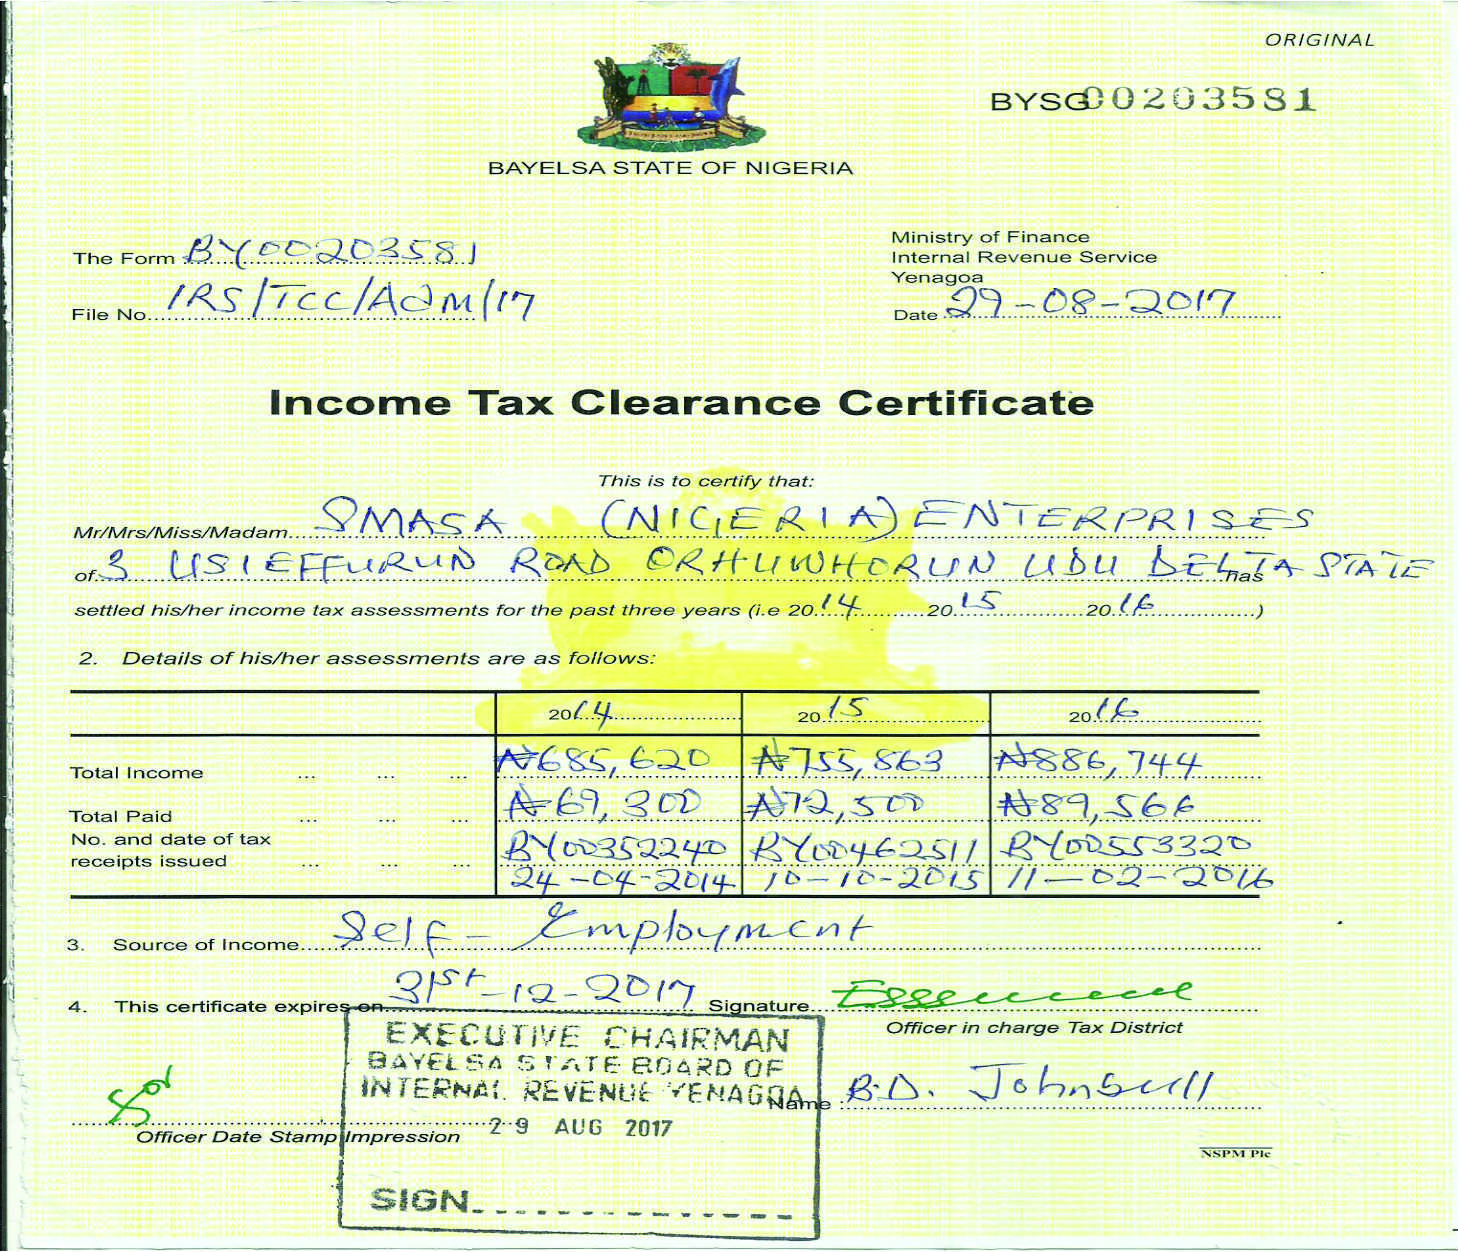 ORIGINAL
BYSG00203581
BAYELSA STATE OF NIGERIA
The Form BY00203581
Ministry of Finance
Internal Revenue Service
Yenagoa
File No. IRS/TCC/Adm/17
Date 29-08-2017
Income Tax Clearance Certificate
This is to certify that:
Mr/Mrs/Miss/Madam SMASA (NIGERIA) ENTERPRISES
of 3 USIEFFURUN ROAD ORHUWHORUN UDU DELTA STATE has
settled his/her income tax assessments for the past three years (i.e 2014 2015 2016)
2. Details of his/her assessments are as follows:
2014 2015 2016
Total Income ... ... ... ₦685,620 ₦755,863 ₦886,744
Total Paid ... ... ... ₦69,300 ₦72,500 ₦89,566
No. and date of tax
receipts issued ... ... ... BY00352240 BY00462511 BY00553320
24-04-2014 10-10-2015 11-02-2016
3. Source of Income Self-Employment
4. This certificate expires on 31st-12-2017 Signature
Officer in charge Tax District
EXECUTIVE CHAIRMAN
BAYELSA STATE BOARD OF
INTERNAL REVENUE YENAGOA
Name B.D. Johnbull
29 AUG 2017
Officer Date Stamp Impression
NSPM Plc
SIGN